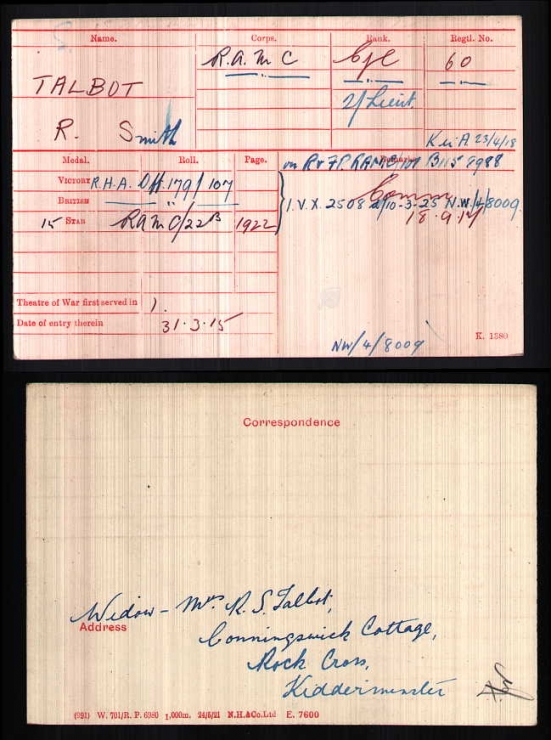 Name. Corps. Rank. Regtl. No.
TALBOT R.A.M.C Cpl 60
2/Lieut.
R. Smith
K in A 23/4/18
Medal. Roll. Page. Remarks.
on R & F.P. RAMC/
Victory R.H.A. Off 179/ 107
British " "
I.V.X. 2508 d/10-3-25 N.W./4/8009.
Comm
18.9.17
15 Star RAMC/22B 1922
Theatre of War first served in 1.
Date of entry therein 31.3.15
NW/4/8009
K. 1380
Correspondence
Widow - Mrs R. S. Talbot,
Address
Conningswick Cottage,
Rock Cross,
Kidderminster
W. 791/R.P. 6980 1,000m. 24/5/21 N.H.&Co.Ltd E. 7600